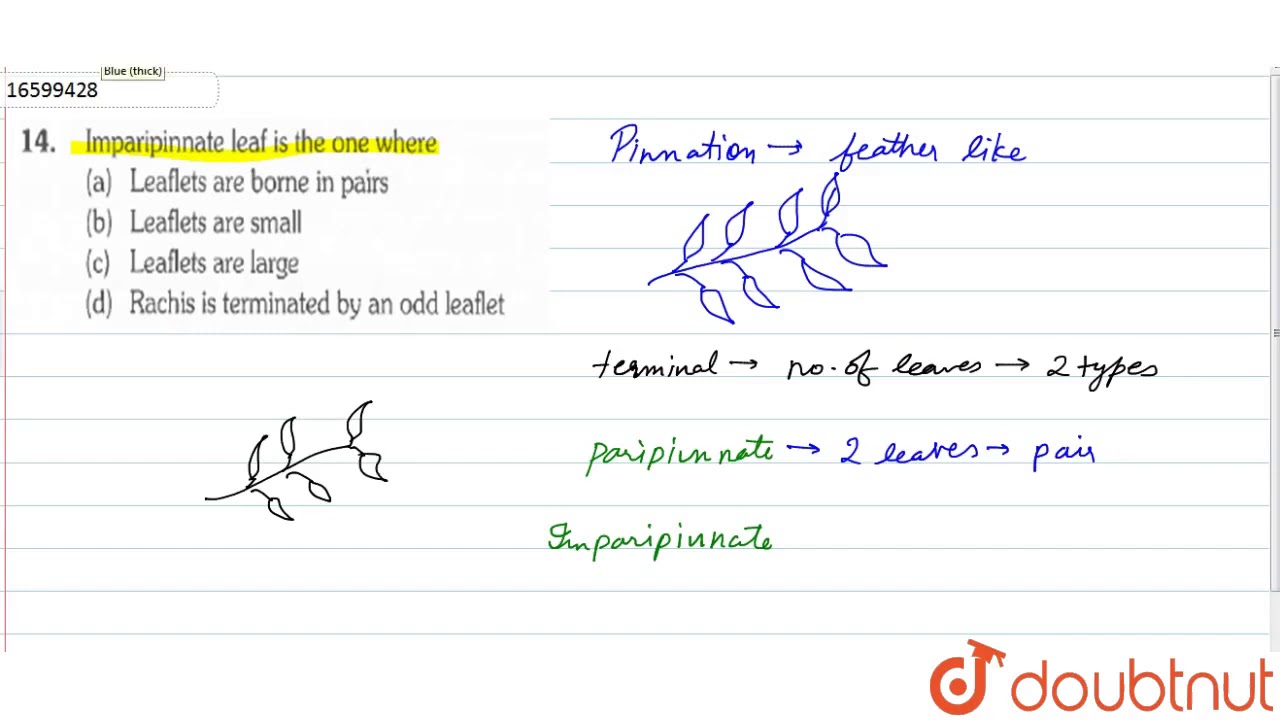 Blue (thick)
16599428
14. Imparipinnate leaf is the one where
(a) Leaflets are borne in pairs
(b) Leaflets are small
(c) Leaflets are large
(d) Rachis is terminated by an odd leaflet
Pinnation → feather like
terminal → no. of leaves → 2 types
paripinnate → 2 leaves → pair
Imparipinnate
doubtnut